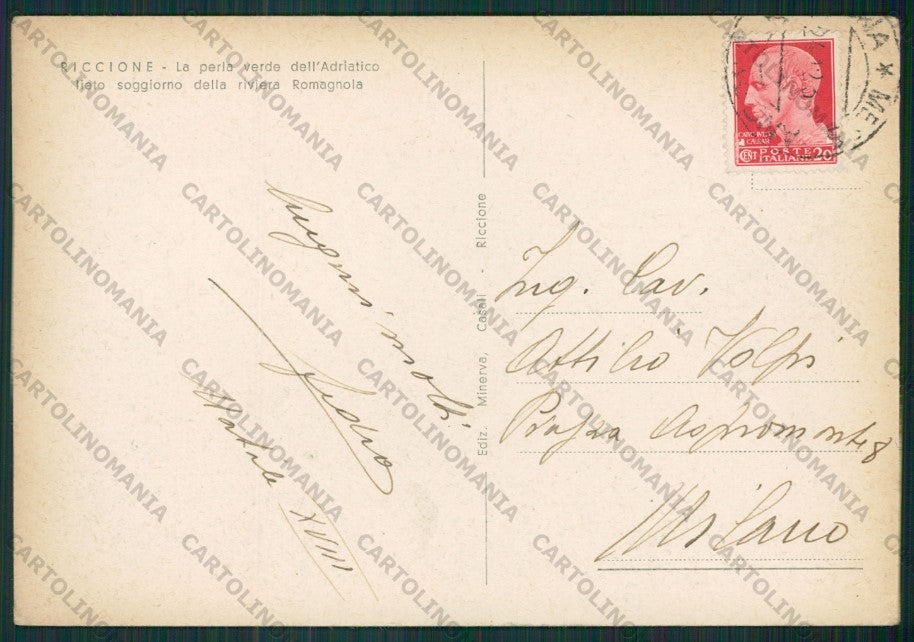 RICCIONE - La perla verde dell'Adriatico
lieto soggiorno della riviera Romagnola
Auguri molti
Pedro
Natale XVIII
Ediz. Minerva, Casali - Riccione
CENT POSTE ITALIANE 20
Ing. Cav.
Attilio Volpi
Piazza Aspromonte 8
Milano
CARTOLINOMANIA